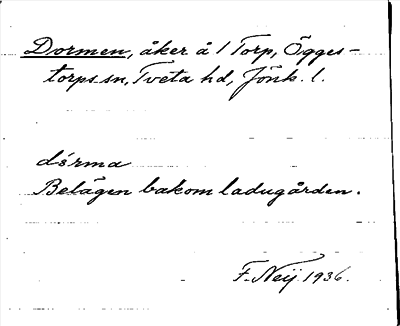 Dormen, åker å 1 Torp, Ögges-
torps sn, Tveta hd, Jönk. l.
dórma
Belägen bakom ladugården.
F. Neij. 1936.